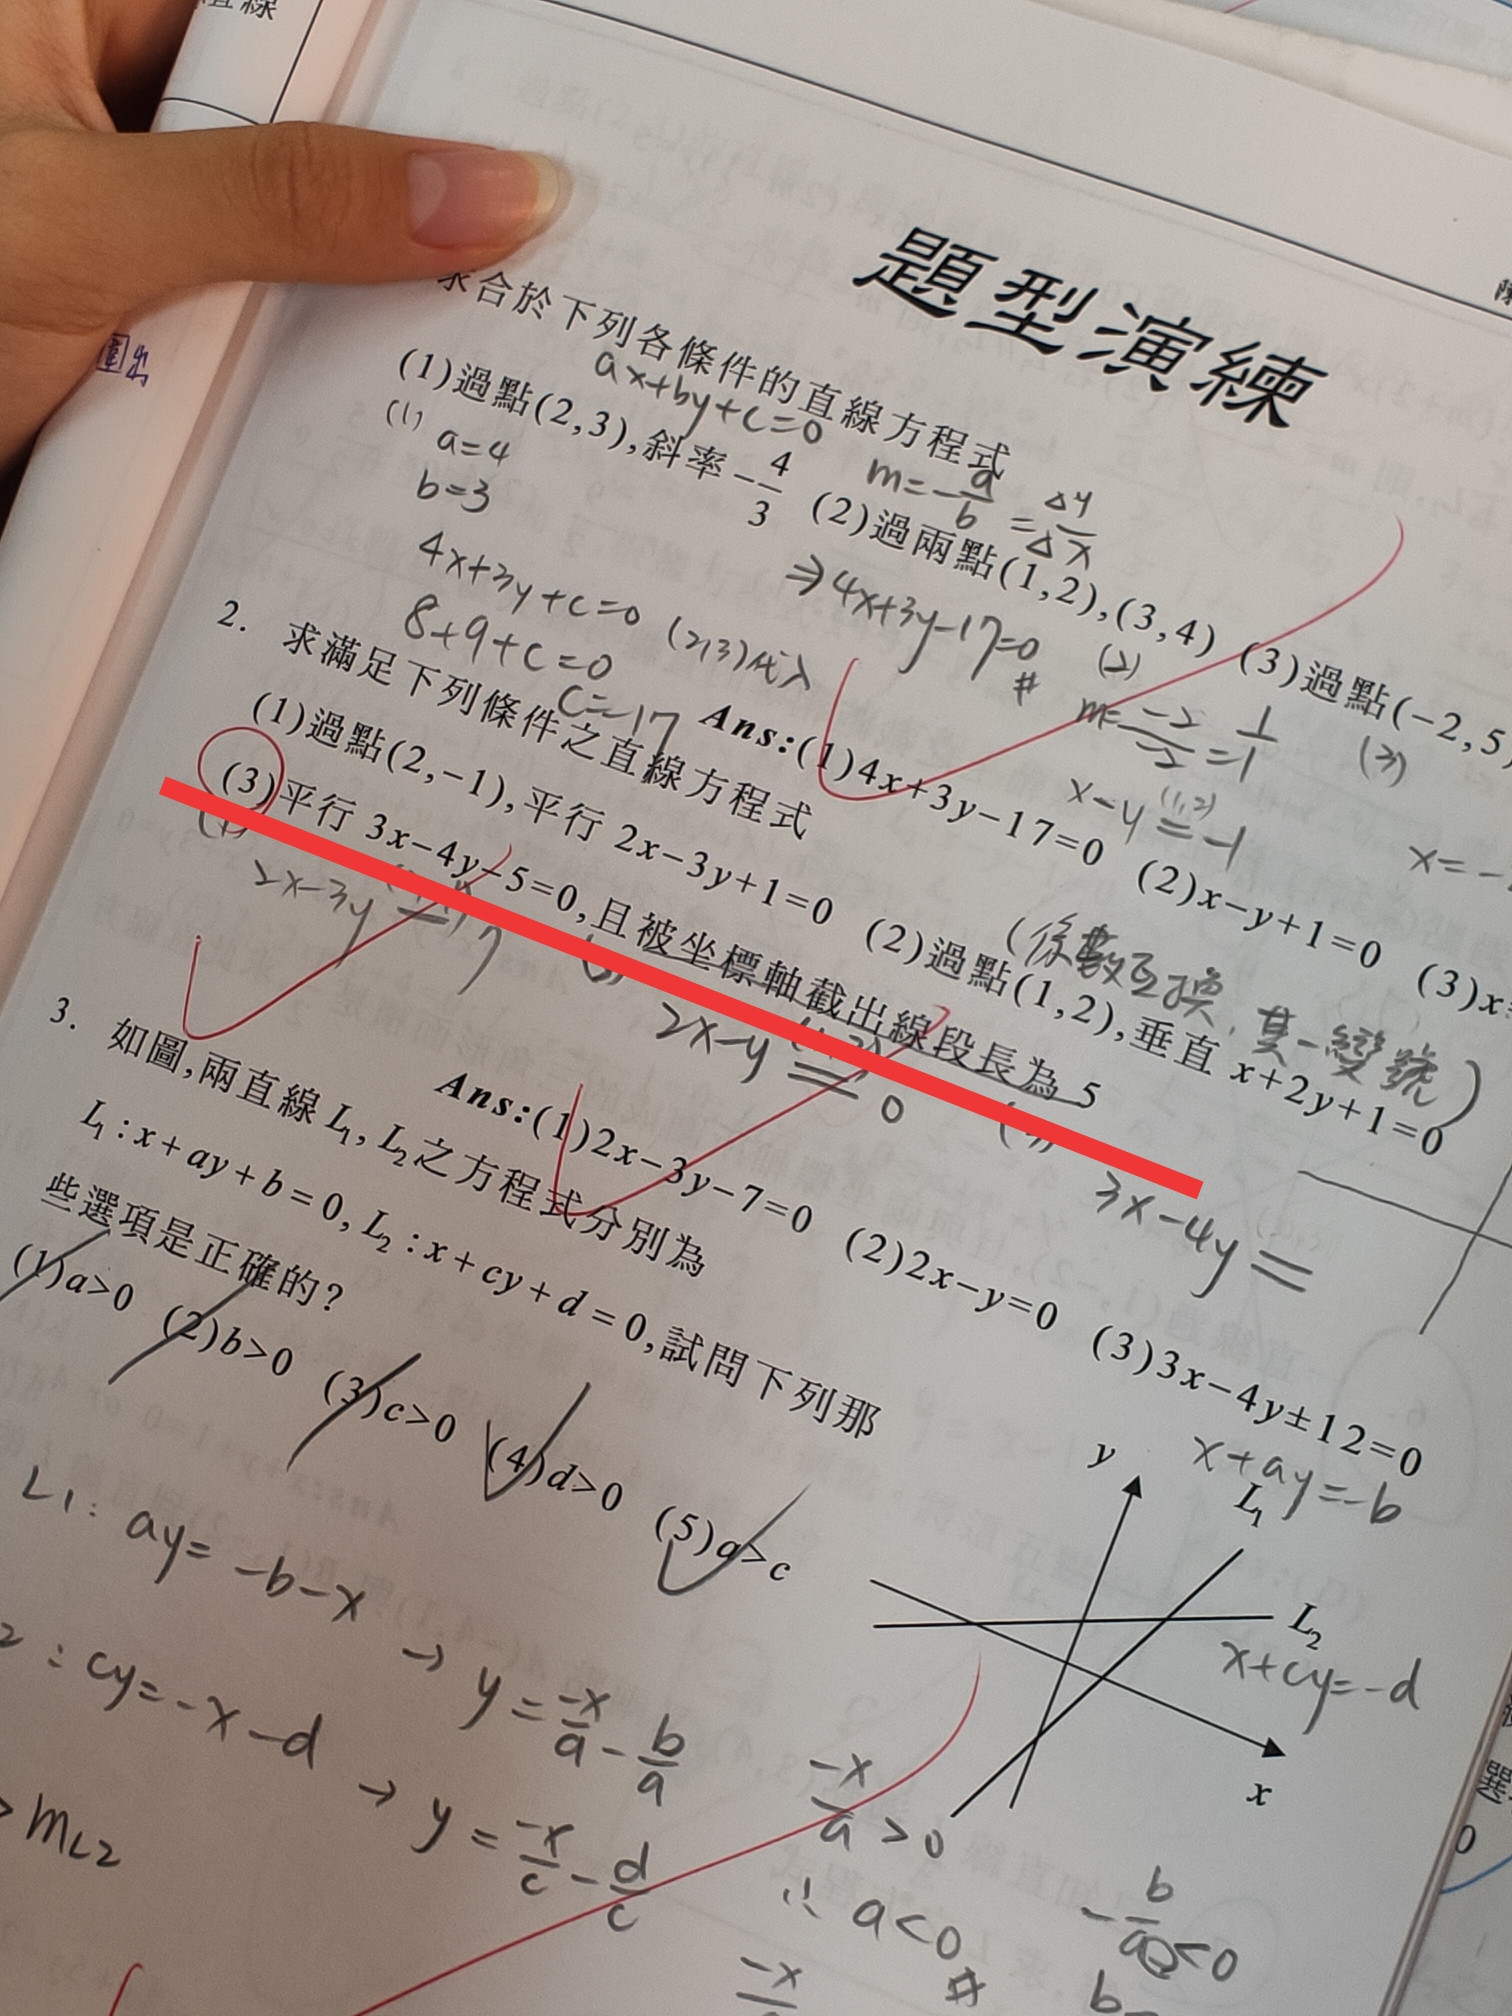 直線
題型演練
求合於下列各條件的直線方程式
ax+by+c=0
(1)過點(2,3),斜率-4/3 (2)過兩點(1,2),(3,4) (3)過點(-2,5
m=-a/b=Δy/Δx
(1)
a=4
b=3
4x+3y+c=0 (2,3)代入
8+9+c=0
c=-17
⇒4x+3y-17=0 #
(2)
m=-2/-2=1/1
x-y=-1
(1,2)
(3)
x=-
Ans:(1)4x+3y-17=0 (2)x-y+1=0 (3)x
2. 求滿足下列條件之直線方程式
(係數互換,其一變號)
(1)過點(2,-1),平行 2x-3y+1=0 (2)過點(1,2),垂直 x+2y+1=0
(3)平行 3x-4y-5=0,且被坐標軸截出線段長為 5
2x-3y=7
2x-y=0
3x-4y=
Ans:(1)2x-3y-7=0 (2)2x-y=0 (3)3x-4y±12=0
3. 如圖,兩直線L₁, L₂之方程式分別為
L₁:x+ay+b=0, L₂:x+cy+d=0,試問下列那
些選項是正確的?
(1)a>0 (2)b>0 (3)c>0 (4)d>0 (5)a>c
y
x+ay=-b
L₁
L₂
x+cy=-d
x
L1: ay=-b-x → y=-x/a-b/a
2: cy=-x-d → y=-x/c-d/c
> mL2
-x/a>0
∴ a<0 #
-b/a<0
b-
-x